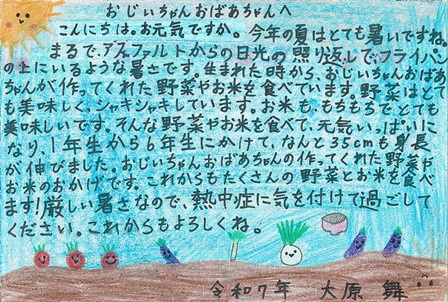 おじぃちゃんおばあちゃんへ
こんにちは。お元気ですか。今年の夏はとても暑いですね。
まるで、アスファルトからの日光の照り返しで、フライパン
の上にいるような暑さです。生まれた時から、おじぃちゃんおばあ
ちゃんが作ってくれた野菜やお米を食べています。野菜はとて
も美味しく、シャキシャキしています。お米も、もちもちで、とても
美味しいです。そんな野菜やお米を食べて、元気いっぱいに
なり、1年生から6年生にかけて、なんと35cmも身長
が伸びました。おじぃちゃんおばあちゃんの作ってくれた野菜や
お米のおかげです。これからもたくさんの野菜とお米を食べ
ます!厳しい暑さなので、熱中症に気を付けて過ごして
ください。これからもよろしくね。
令和7年 大原 舞